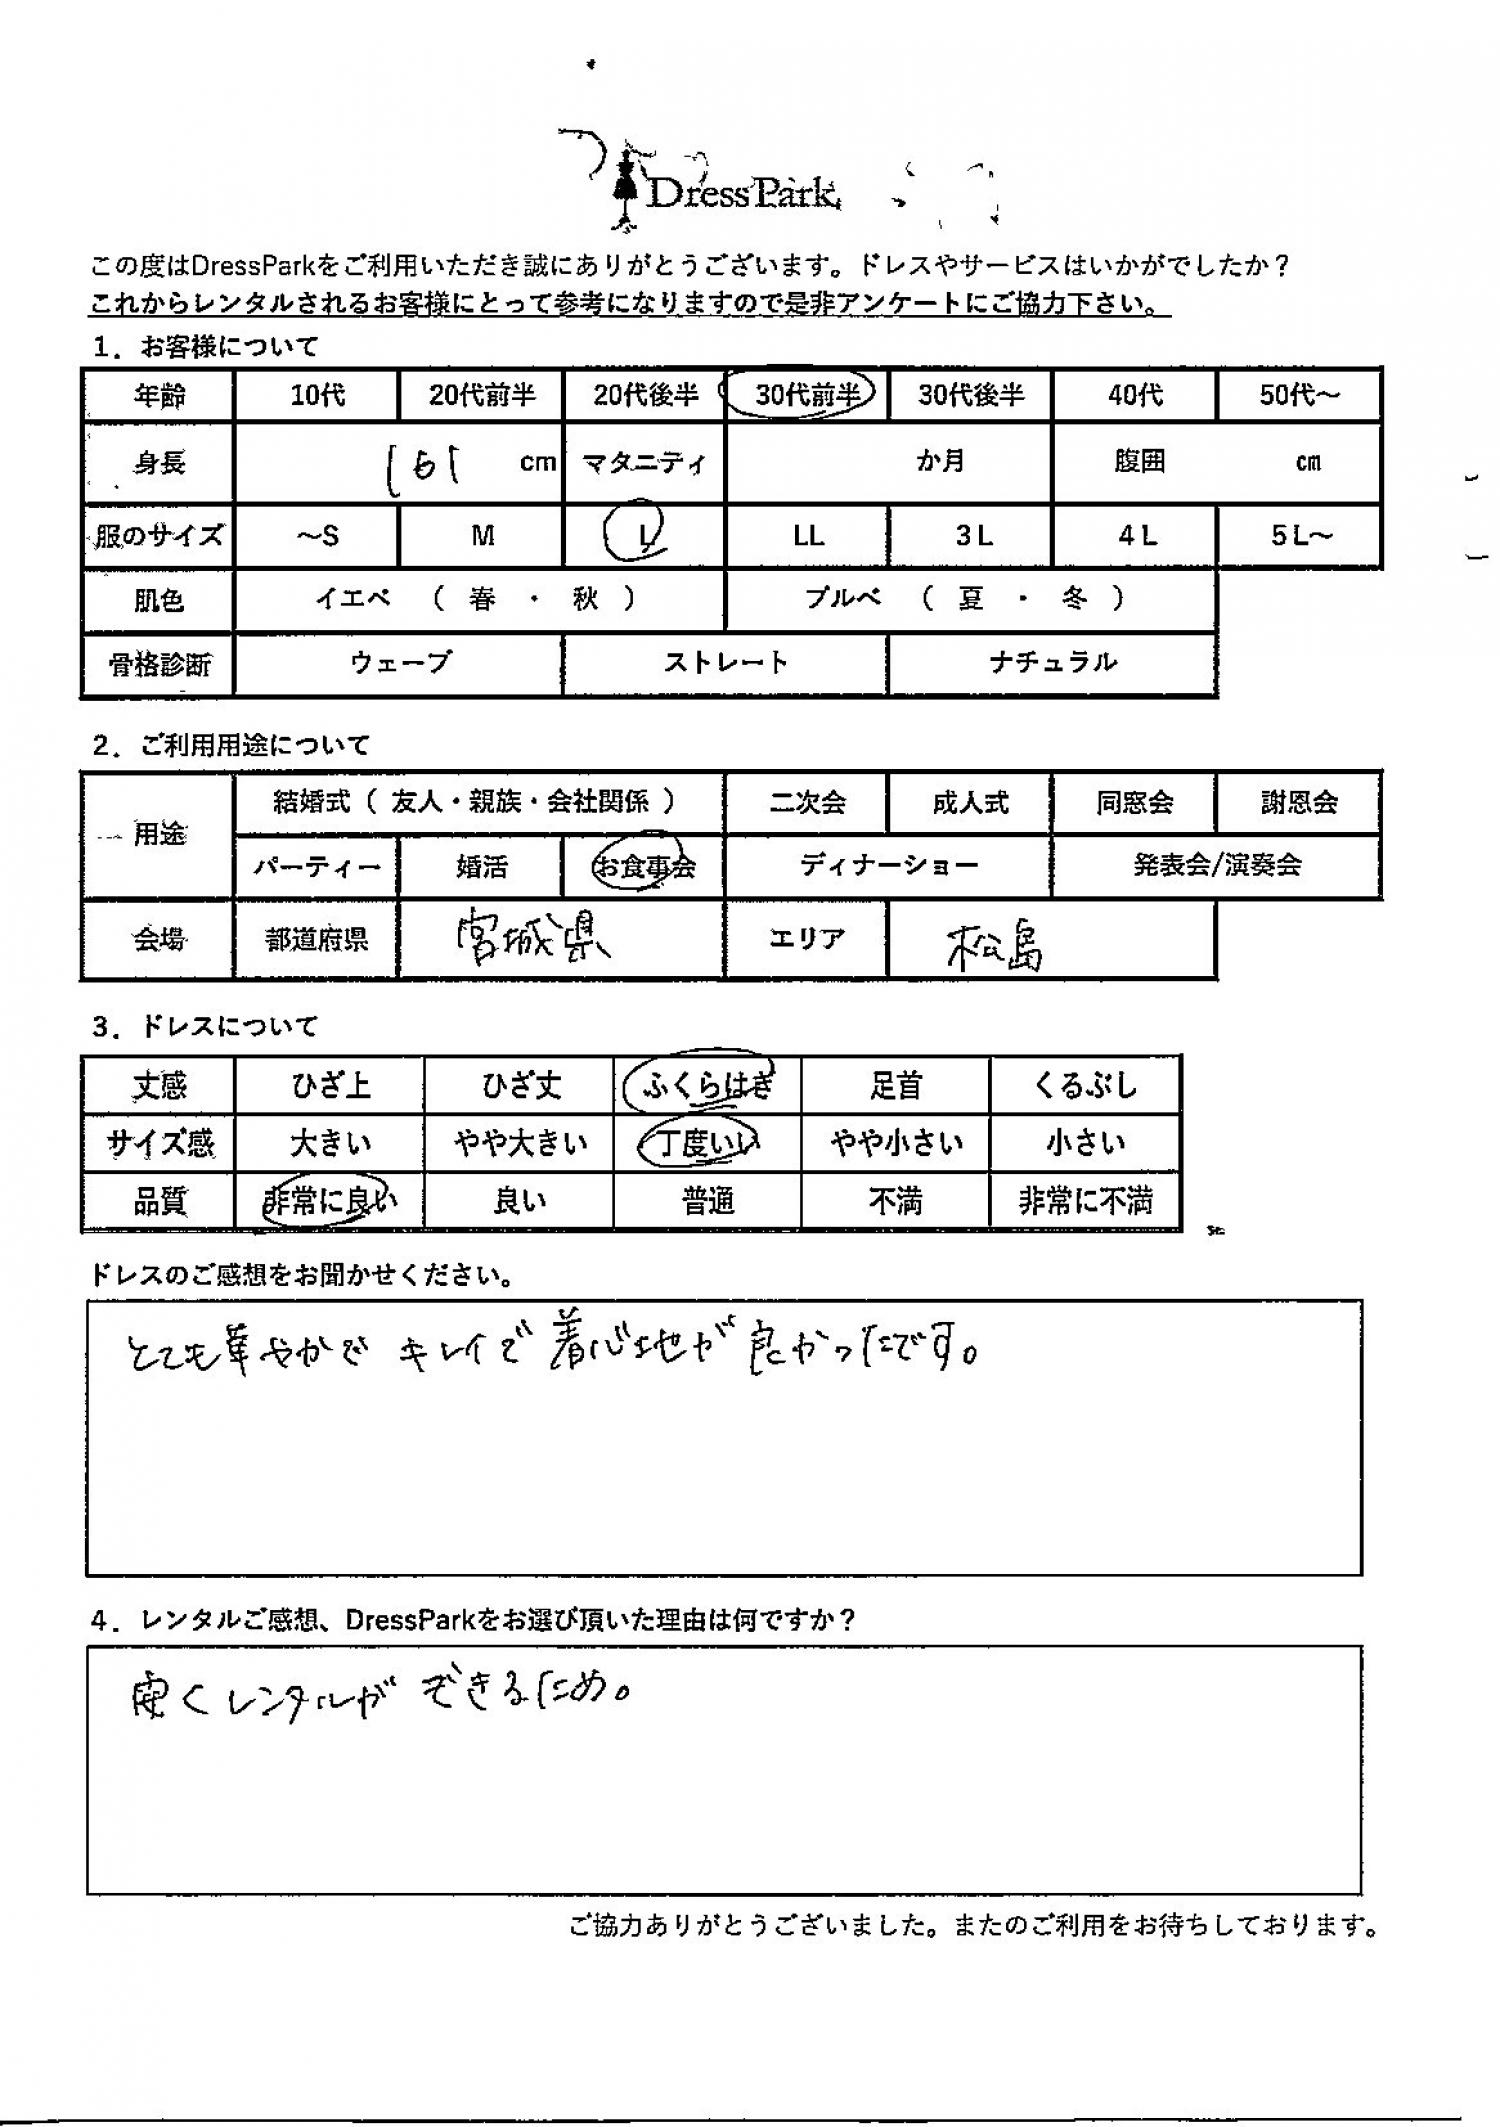 DressPark
この度はDressParkをご利用いただき誠にありがとうございます。ドレスやサービスはいかがでしたか？
これからレンタルされるお客様にとって参考になりますので是非アンケートにご協力下さい。
1．お客様について
年齢 10代 20代前半 20代後半 30代前半 30代後半 40代 50代～
身長 161 cm マタニティ か月 腹囲 cm
服のサイズ ～S M L LL 3L 4L 5L～
肌色 イエベ （ 春 ・ 秋 ） ブルベ （ 夏 ・ 冬 ）
骨格診断 ウェーブ ストレート ナチュラル
2．ご利用用途について
用途 結婚式（ 友人・親族・会社関係 ） 二次会 成人式 同窓会 謝恩会
パーティー 婚活 お食事会 ディナーショー 発表会/演奏会
会場 都道府県 宮城県 エリア 松島
3．ドレスについて
丈感 ひざ上 ひざ丈 ふくらはぎ 足首 くるぶし
サイズ感 大きい やや大きい 丁度いい やや小さい 小さい
品質 非常に良い 良い 普通 不満 非常に不満
ドレスのご感想をお聞かせください。
とても華やかで キレイで 着心地が 良かったです。
4．レンタルご感想、DressParkをお選び頂いた理由は何ですか？
安くレンタルが できるため。
ご協力ありがとうございました。またのご利用をお待ちしております。